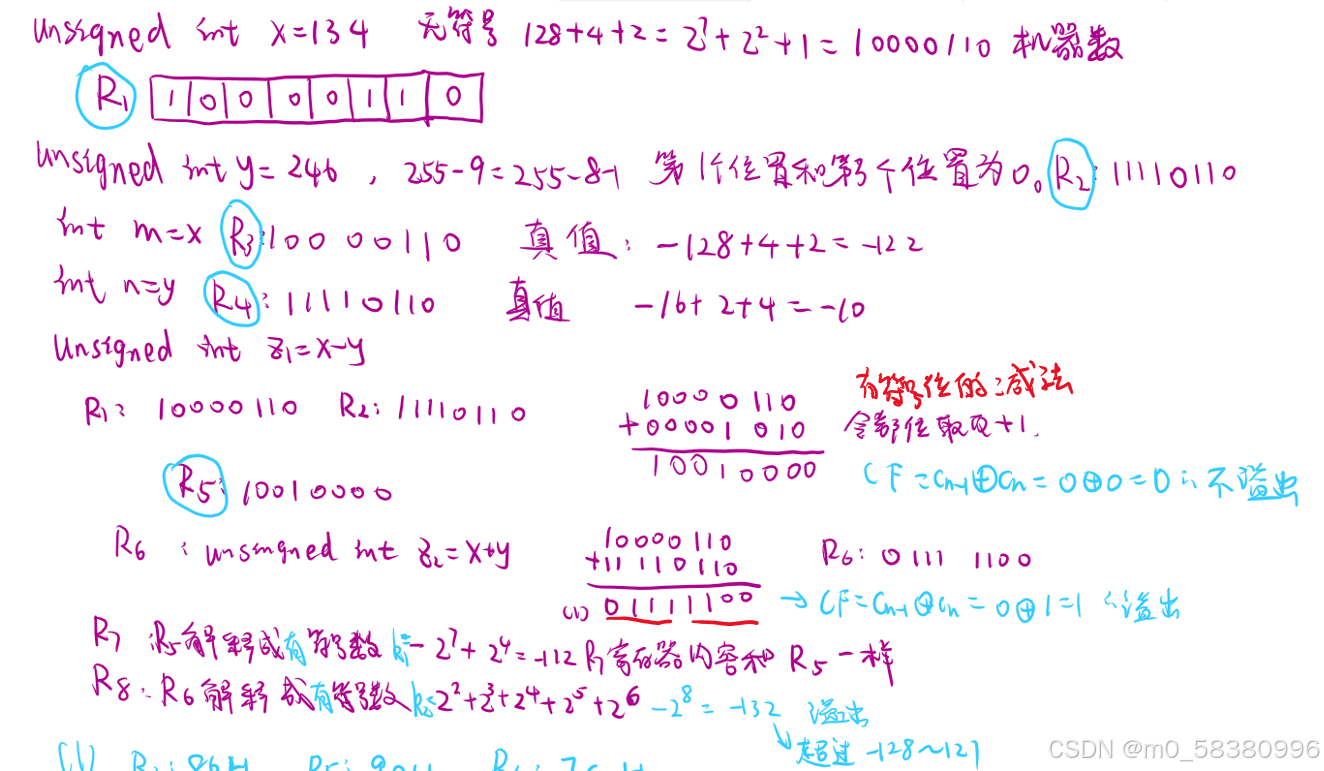 unsigned int x=134 无符号 128+4+2=2⁷+2²+1=10000110 机器数
R₁ 1 0 0 0 0 1 1 0
unsigned int y=246 , 255-9=255-8-1 第1个位置和第3个位置为0。R₂:11110110
int m=x R₃:10000110 真值: -128+4+2=-122
int n=y R₄:11110110 真值 -16+2+4=-10
unsigned int z₁=x-y
R₁: 10000110 R₂:11110110
10000110
+00001010
10010000
有符号位的减法
全部位取反+1.
CF=Cn-1⊕Cn=0⊕0=0∴不溢出
R₅:10010000
R₆ : unsingned int z₂=x+y
10000110
+11110110
(1) 01111100
R₆:0111 1100
→ CF=Cn-1⊕Cn=0⊕1=1 ∴溢出
R₇ R₅解释成有符号数 -2⁷+2⁴=-112 寄存器内容和R₅一样
R₈:R₆解释成有符号数 2²+2³+2⁴+2⁵+2⁶-2⁸=-132 溢出
超过-128~127
CSDN @m0_58380996